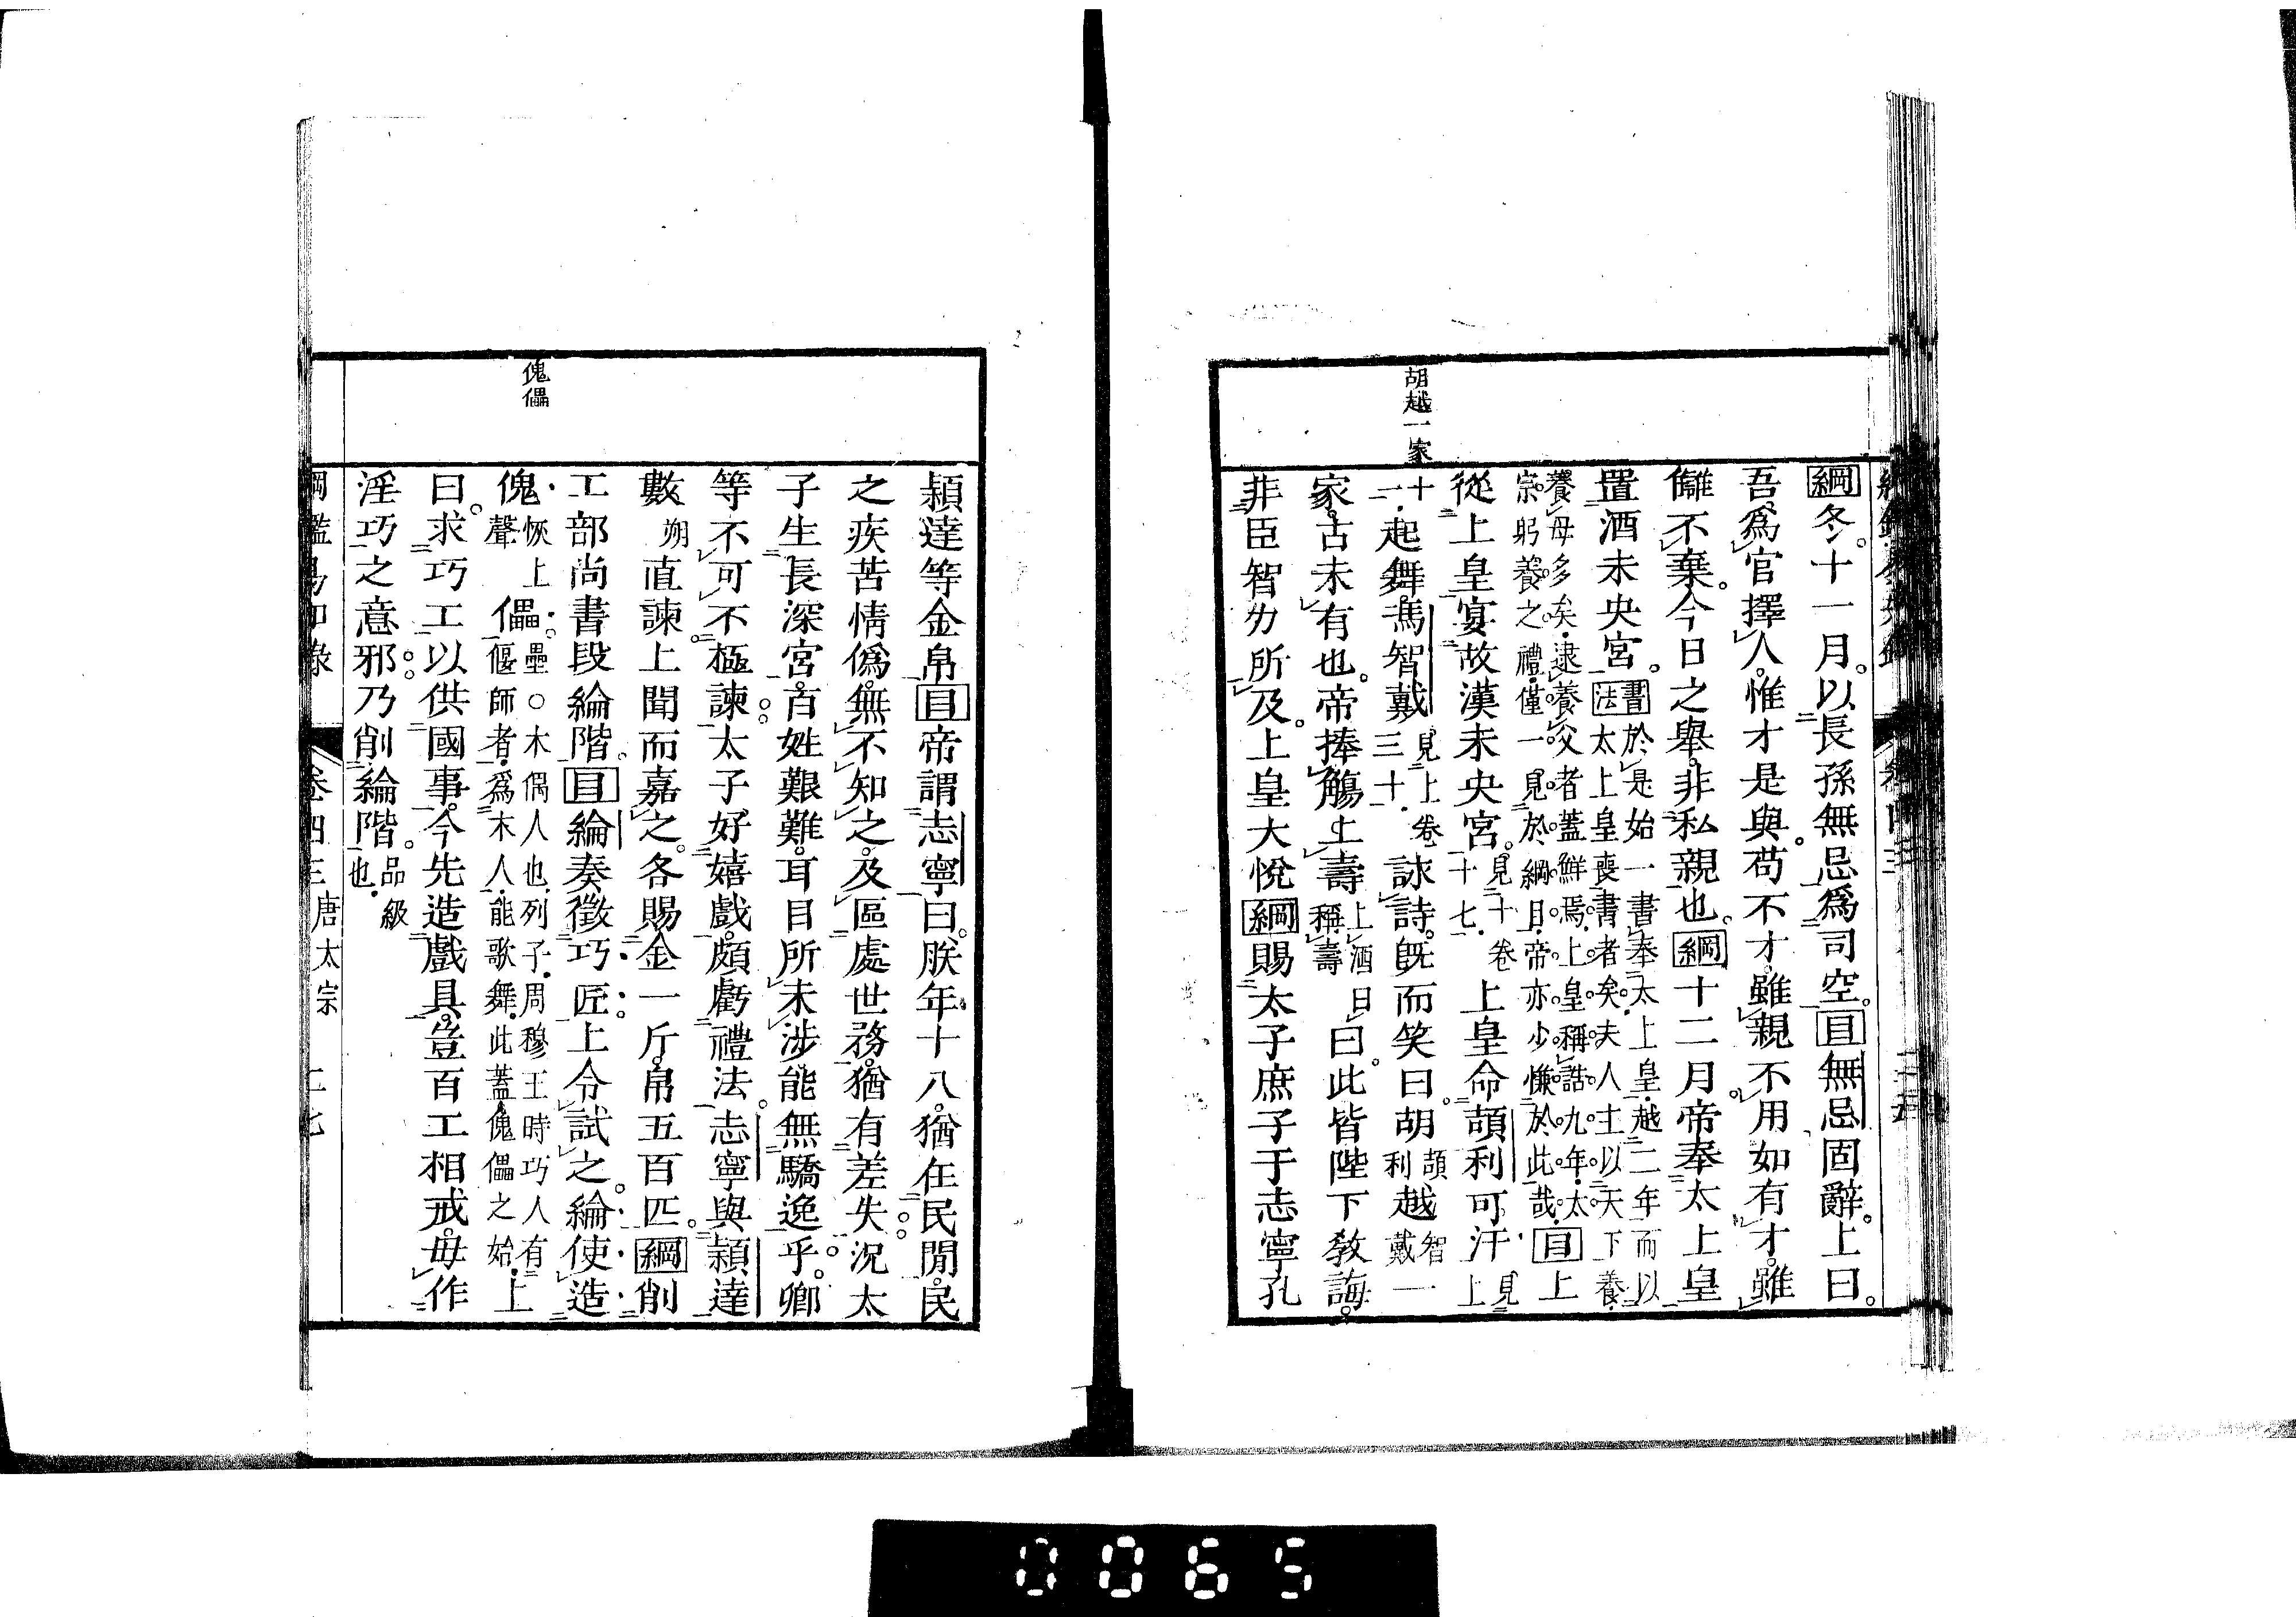 胡越一家
綱冬十一月以長孫無忌爲司空目無忌固辭上曰
吾爲官擇人惟才是與苟不才雖親不用如有才雖
讎不棄今日之舉非私親也綱十二月帝奉太上皇
置酒未央宮書法於是始一書奉太上皇越二年而以太上皇喪書者矣夫人主以天下養
養母多矣逮養父者蓋鮮焉上皇稱誥九年太宗躬養之禮僅一見於綱目帝亦少慊於此哉目上
從上皇宴故漢未央宮見十卷十七上皇命頡利可汗見上
十一起舞馮智戴見上卷三十詠詩既而笑曰胡頡利越智戴一
家古未有也帝捧觴上壽上酒曰稱壽曰此皆陛下敎誨
非臣智力所及上皇大悅綱賜太子庶子于志寧孔
傀儡
穎達等金帛目帝謂志寧曰朕年十八猶在民閒民
之疾苦情僞無不知之及區處世務猶有差失況太
子生長深宮百姓艱難耳目所未涉能無驕逸乎卿
等不可不極諫太子好嬉戲頗虧禮法志寧與穎達
數朔直諫上聞而嘉之各賜金一斤帛五百匹綱削
工部尚書段綸階目綸奏徵巧匠上令試之綸使造
傀恢上聲儡壘○木偶人也列子周穆王時巧人有偃師者爲木人能歌舞此蓋傀儡之始上
曰求巧工以供國事今先造戲具豈百工相戒毋作
淫巧之意邪乃削綸階品級也
卷四三 唐太宗
0065